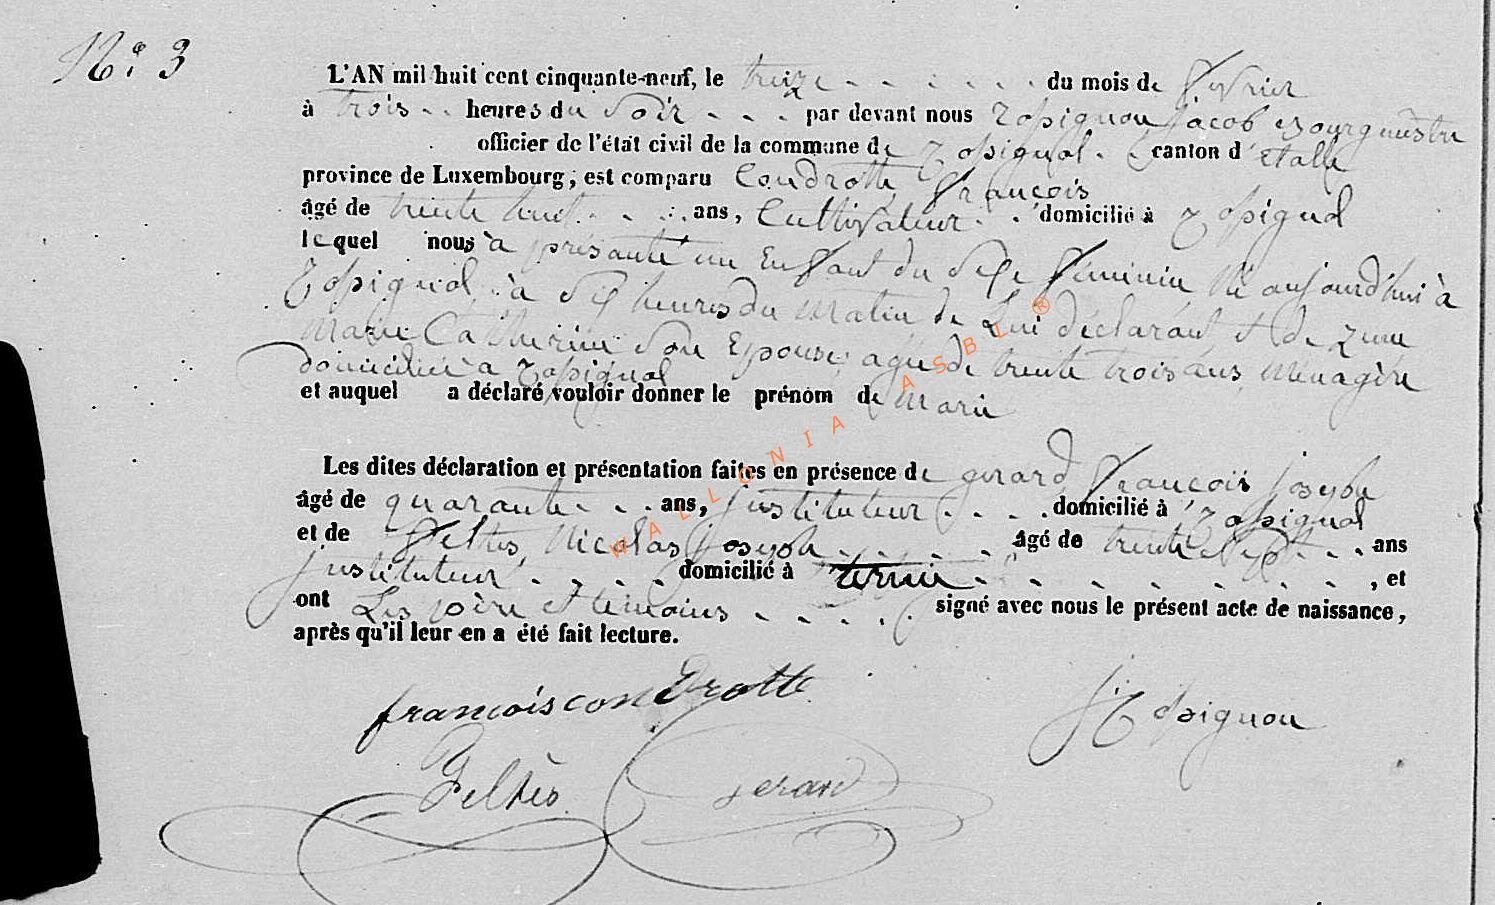 N.º 3
L'AN mil huit cent cinquante-neuf, le treize du mois de fevrier
à trois heures du soir par devant nous Topignon Jacob Bourgmestre
officier de l'état civil de la commune de canton d'étalle
province de Luxembourg, est comparu Condrotte François
âgé de trente huit ans, Cultivateur domicilié à
lequel nous à présanté un Enfant du sexe feminin Né aujourd'hui à
à six heures du matin de Lui déclarant et de
Marie Catherine son Epouse, agée de trente trois ans Menagère
domiciliée à
et auquel a déclaré vouloir donner le prénom de Marie
Les dites déclaration et présentation faites en présence de girard François Joseph
âgé de quarante ans, Justituteur domicilié à
et de Nicolas Joseph âgé de trente sept ans
Justituteur domicilié à , et
ont Les père et temoins signé avec nous le présent acte de naissance,
après qu'il leur en a été fait lecture.
francois condrotte
gerard
WALLONIA ASBL ®